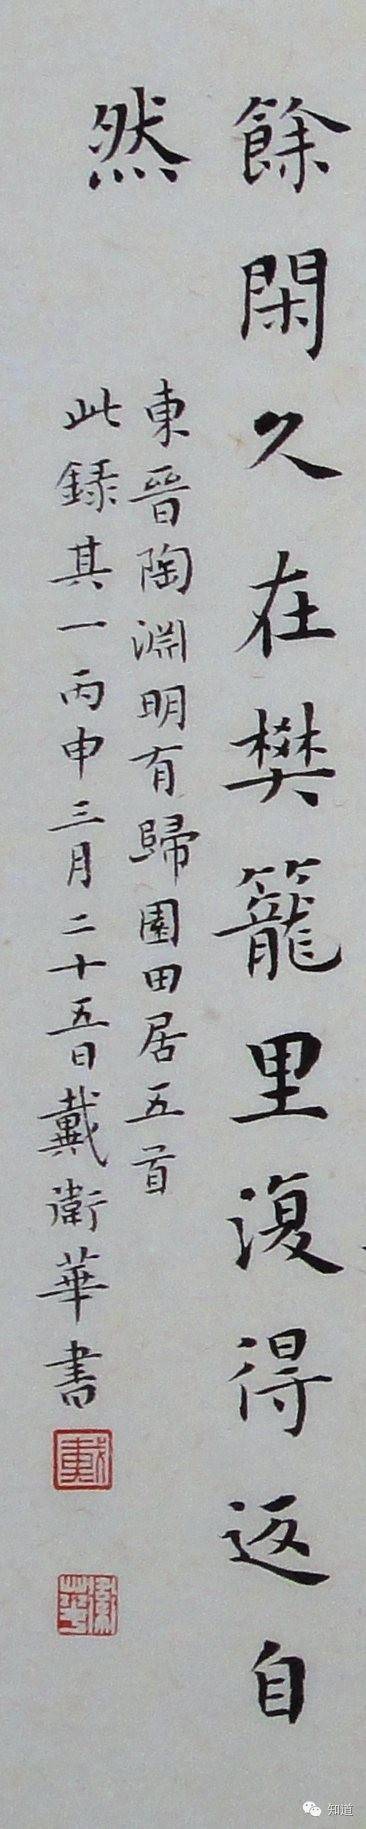 餘閑久在樊籠里復得返自
然
東晉陶淵明有歸園田居五首
此録其一丙申三月二十五日戴衛華書
戴
知道